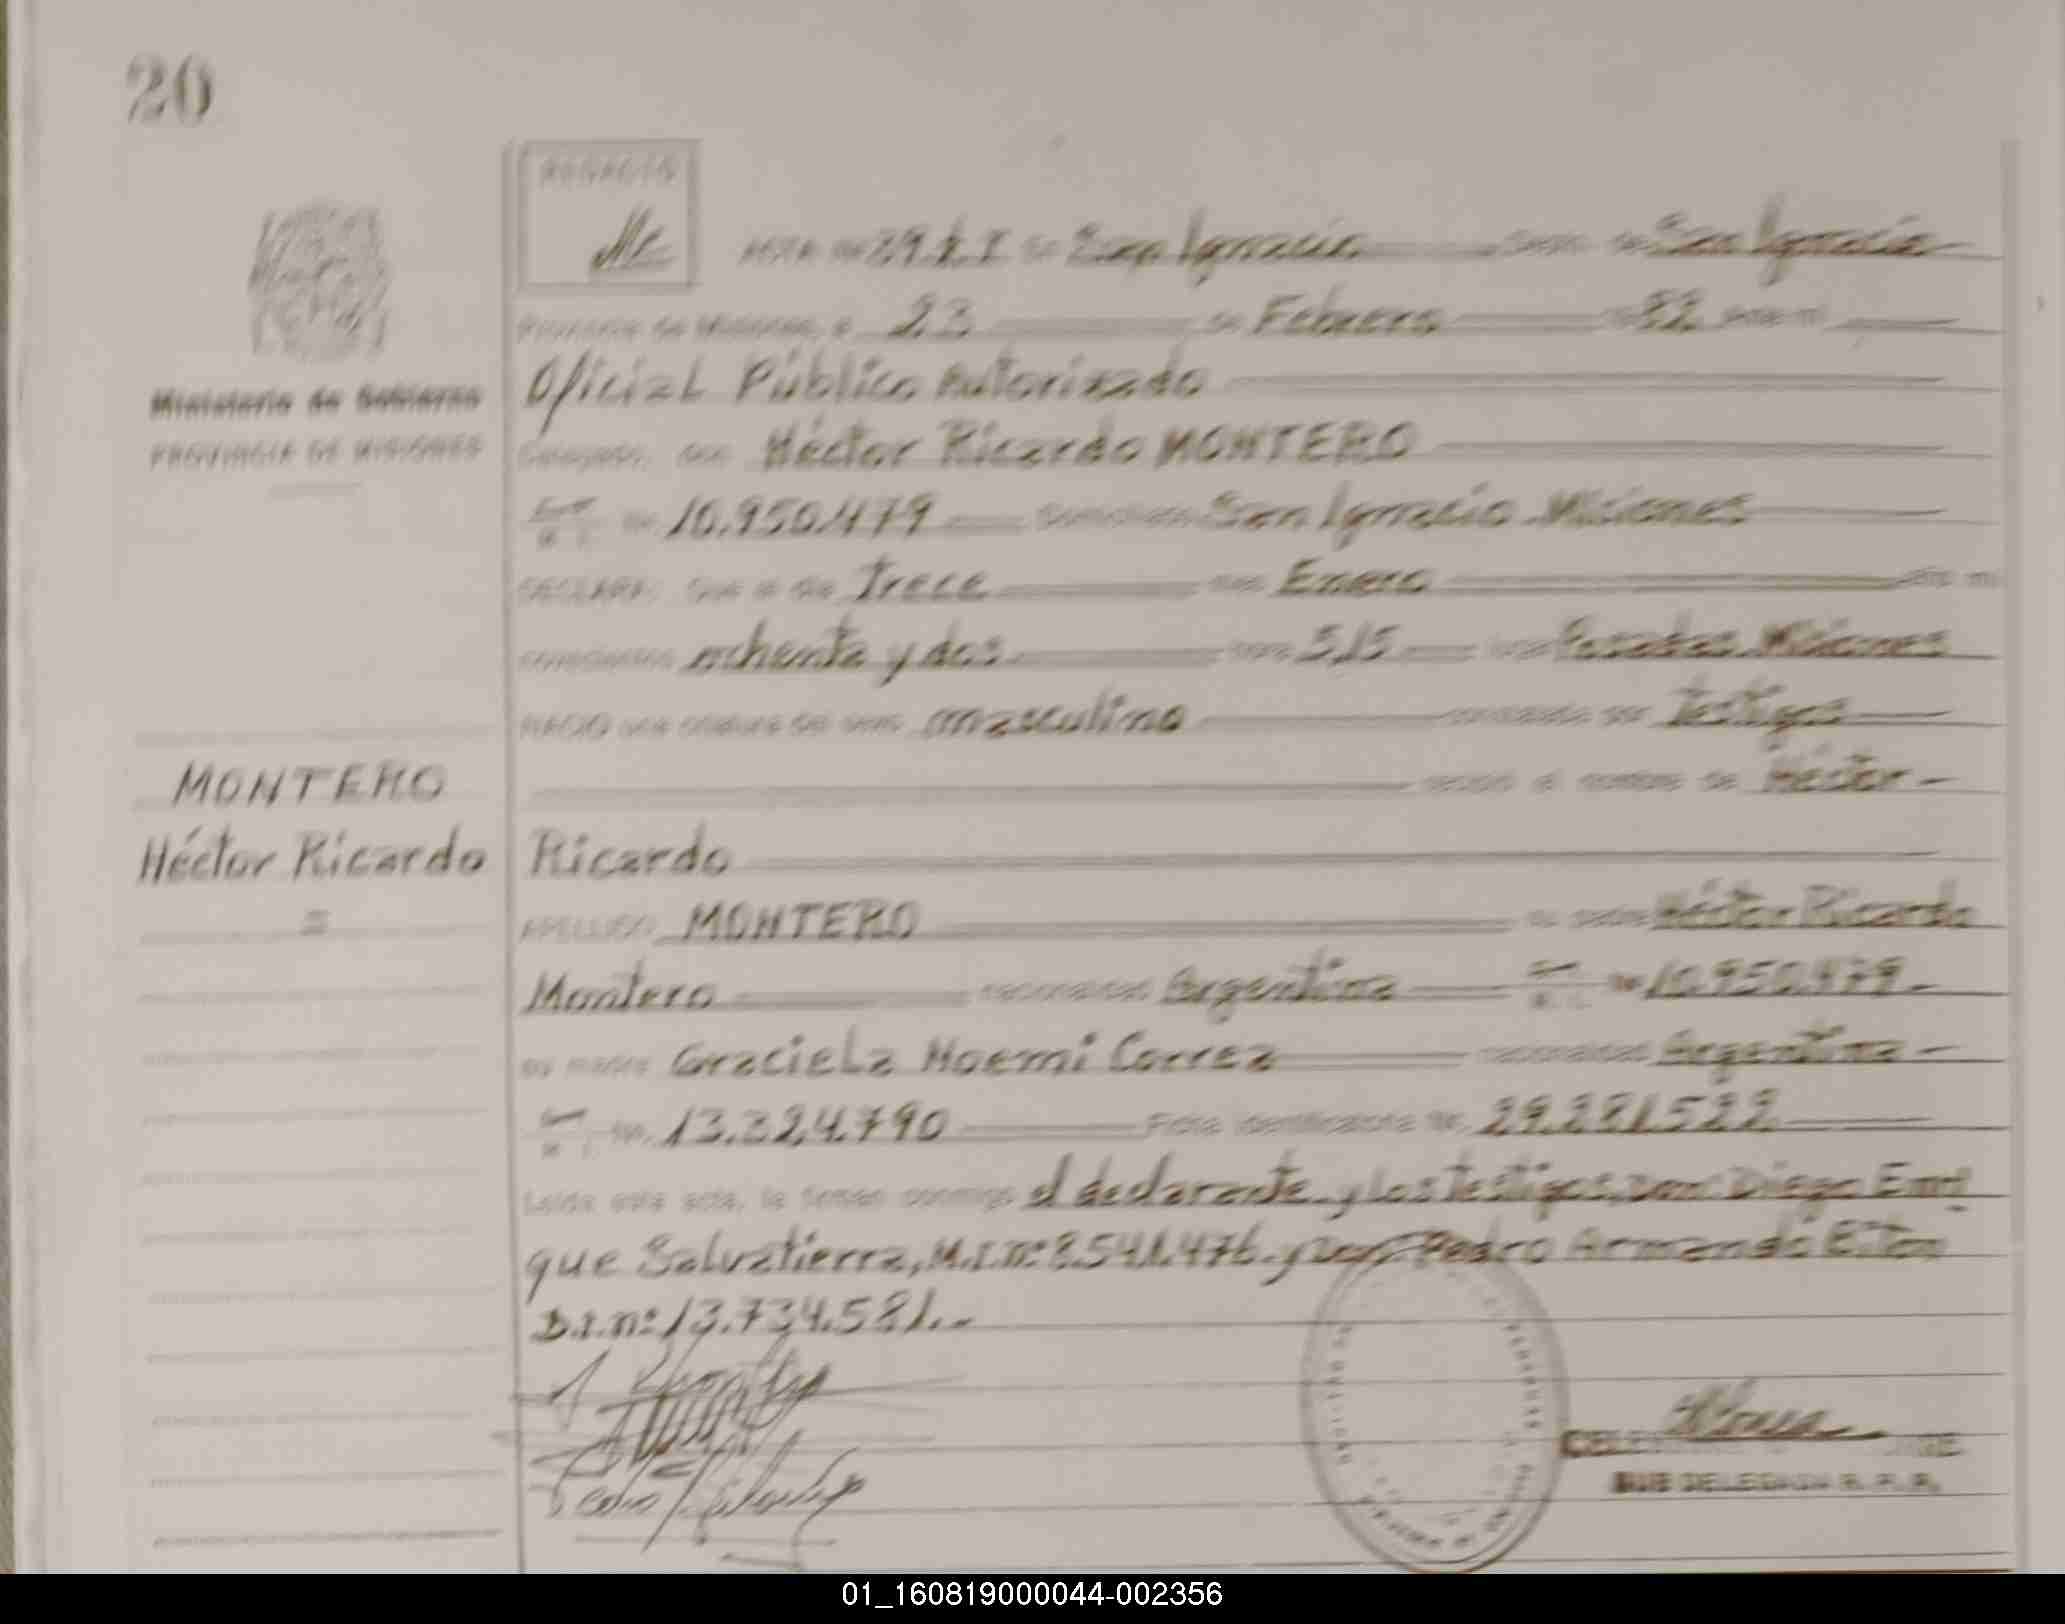 20
Ministerio de Gobierno
PROVINCIA DE MISIONES
ACTA San Ignacio San Ignacio
Provincia de Misiones, a 23 de Febrero 82 ante mi
Oficial Público Autorizado
Héctor Ricardo MONTERO
10.950.479 San Ignacio Misiones
DECLARA: Que el día Trece mes Enero
novecientos ochenta y dos 5,15 Posadas Misiones
NACIO una criatura del sexo masculino testigos
recibió el nombre de Héctor
MONTERO
Héctor Ricardo
Ricardo
APELLIDO MONTERO su padre Héctor Ricardo
Montero nacionalidad Argentina 10.950.479
su madre Graciela Noemi Correa nacionalidad Argentina
13.324.790 Ficha identificatoria Nº 29.281.522
Leída esta acta, la firman conmigo el declarante y los testigos, don: Diego Enri
que Salvatierra, M.I.nº 8.541.476. y don Pedro Armando
D.I.nº 13.734.581.-
SUB DELEGADA R. P. P.
01_160819000044-002356